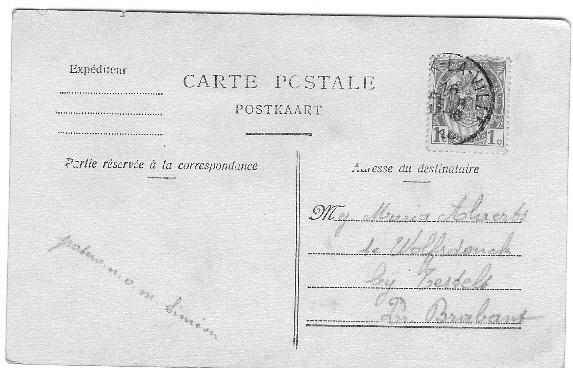 Expéditeur
CARTE POSTALE
POSTKAART
Partie réservée à la correspondance
Adresse du destinataire
1c 1c
Mej Maria
te Wolfsdonck
bij Testelt
Pr Brabant
Siméon